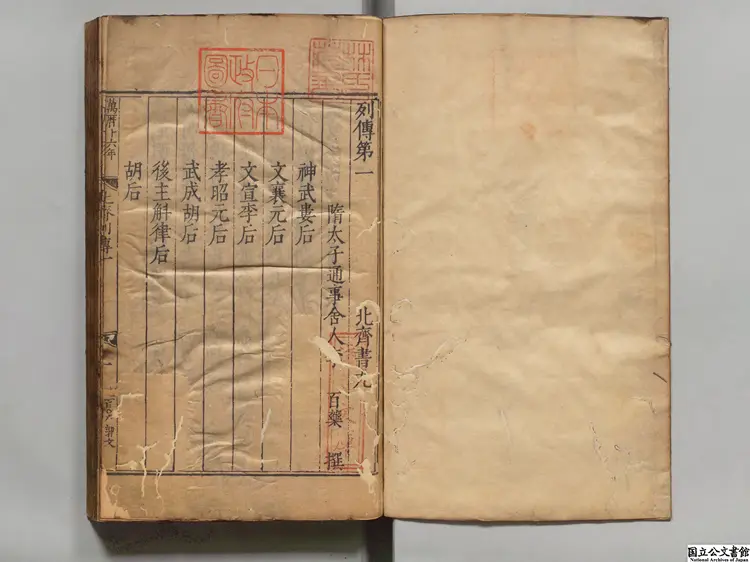 列傳第一
北齊書九
隋太子通事舍人
百藥
撰
神武婁后
文襄元后
文宣李后
孝昭元后
武成胡后
後主斛律后
胡后
萬曆十六年
北齊列傳一
一
日本
政府
圖書
国立公文書館
National Archives of Japan